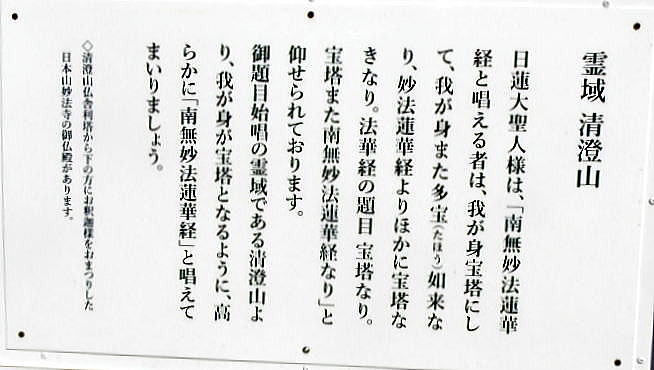 霊域 清澄山
日蓮大聖人様は、「南無妙法蓮華
経と唱える者は、我が身宝塔にし
て、我が身また多宝(たほう)如来な
り、妙法蓮華経よりほかに宝塔な
きなり。法華経の題目 宝塔なり。
宝塔また南無妙法蓮華経なり」と
仰せられております。
御題目始唱の霊域である清澄山よ
り、我が身が宝塔となるように、高
らかに「南無妙法蓮華経」と唱えて
まいりましょう。
◇清澄山仏舎利塔から下の方にお釈迦様をおまつりした
日本山妙法寺の御仏殿があります。